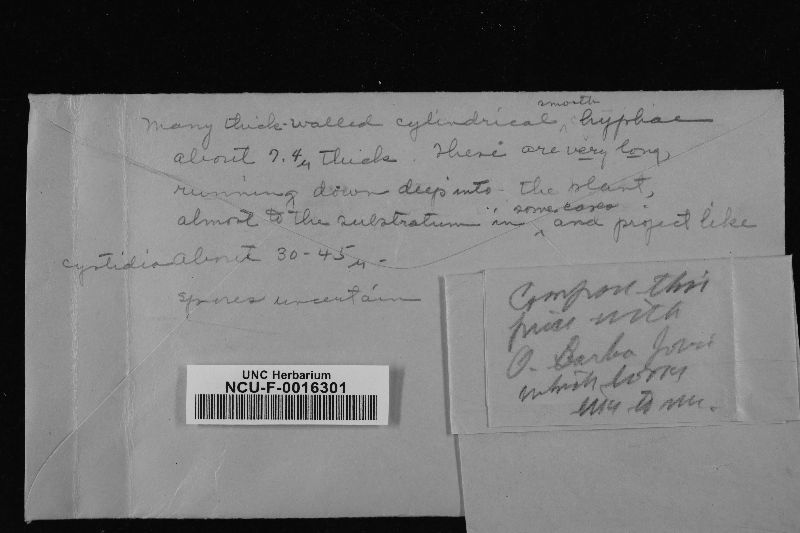 Many thick-walled cylindrical smooth hyphae
about 7.4μ thick. These are very long,
running down deep into the plant,
almost to the substratum in some cases and project like
cystidia about 30-45μ.
Spores uncertain
UNC Herbarium
NCU-F-0016301
Compare this
piece with
O. Barba Jovis
which looks
like to me.